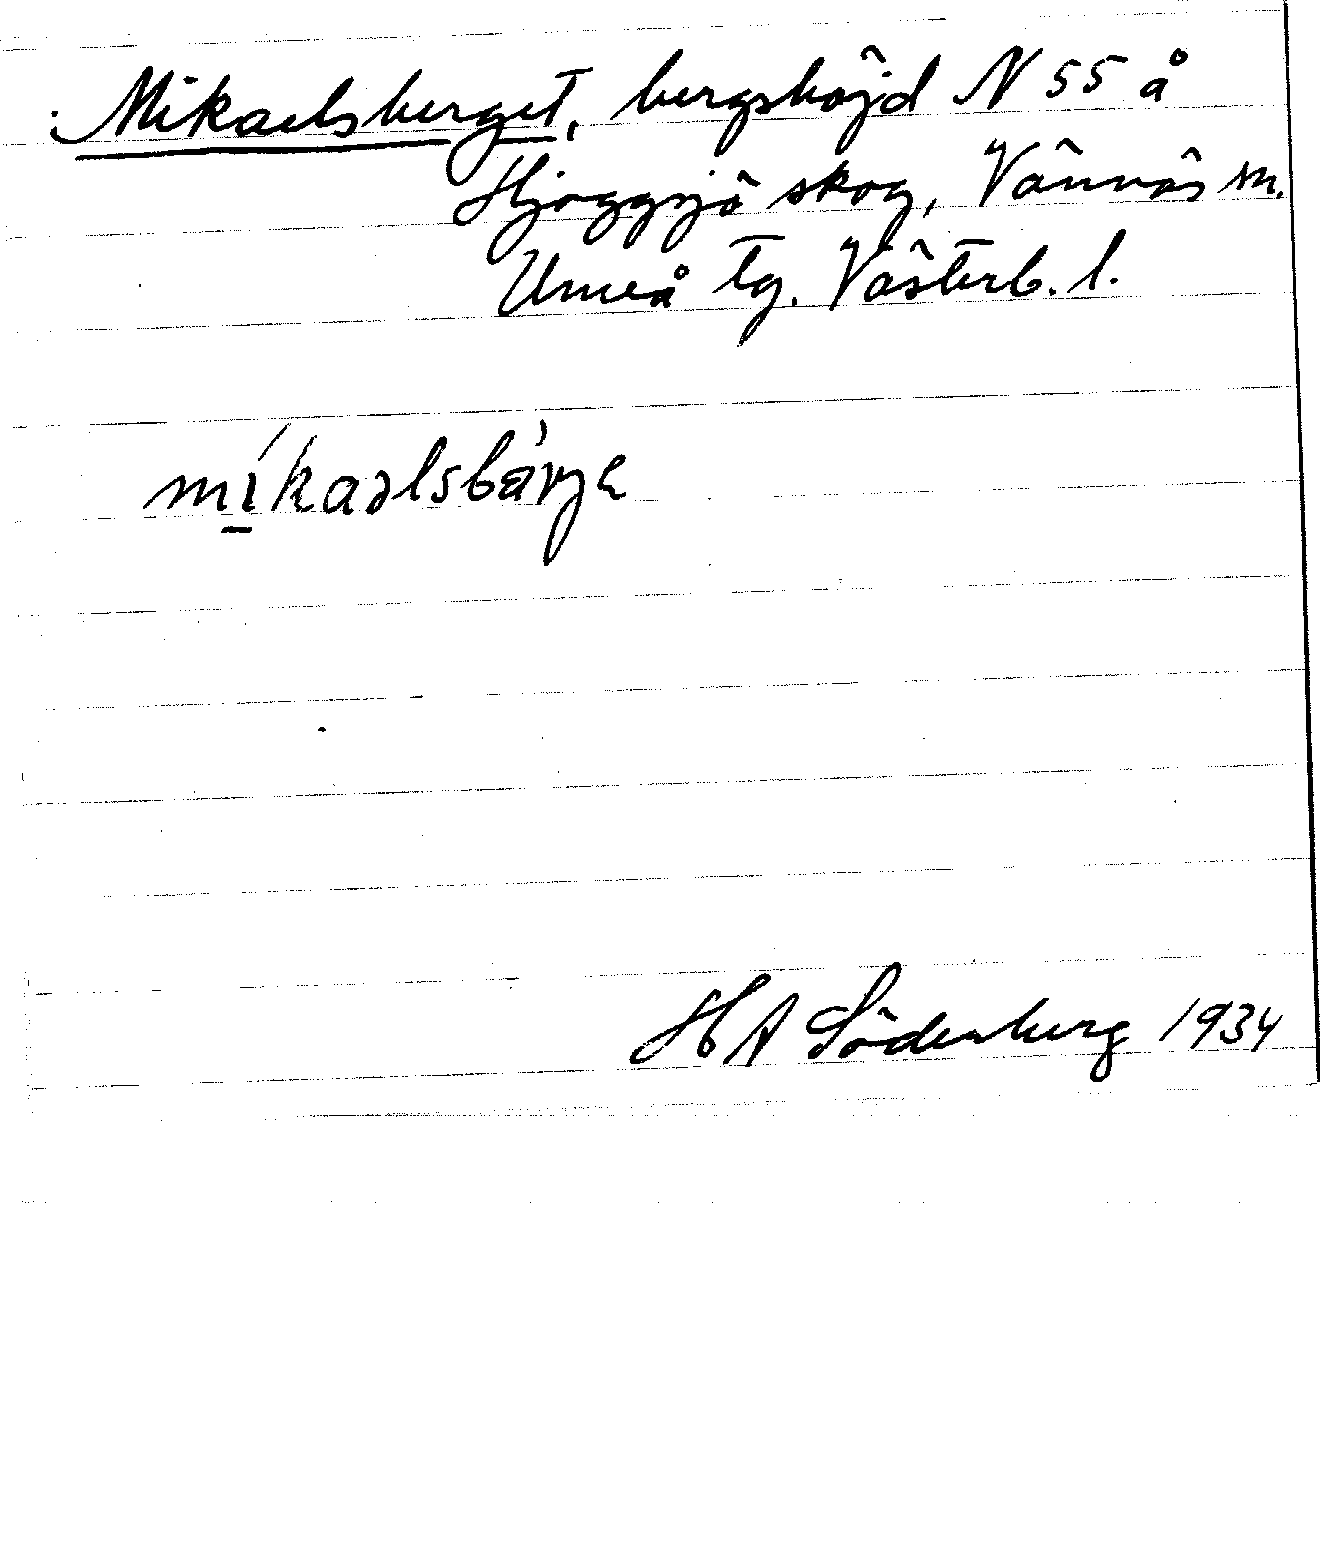 Mikaelsberget, bergshöjd N 55 å
Hjoggsjö skog, Vännäs sn.
Umeå tg. Västerb. l.
míkaəlsbärje
HA Söderberg 1934